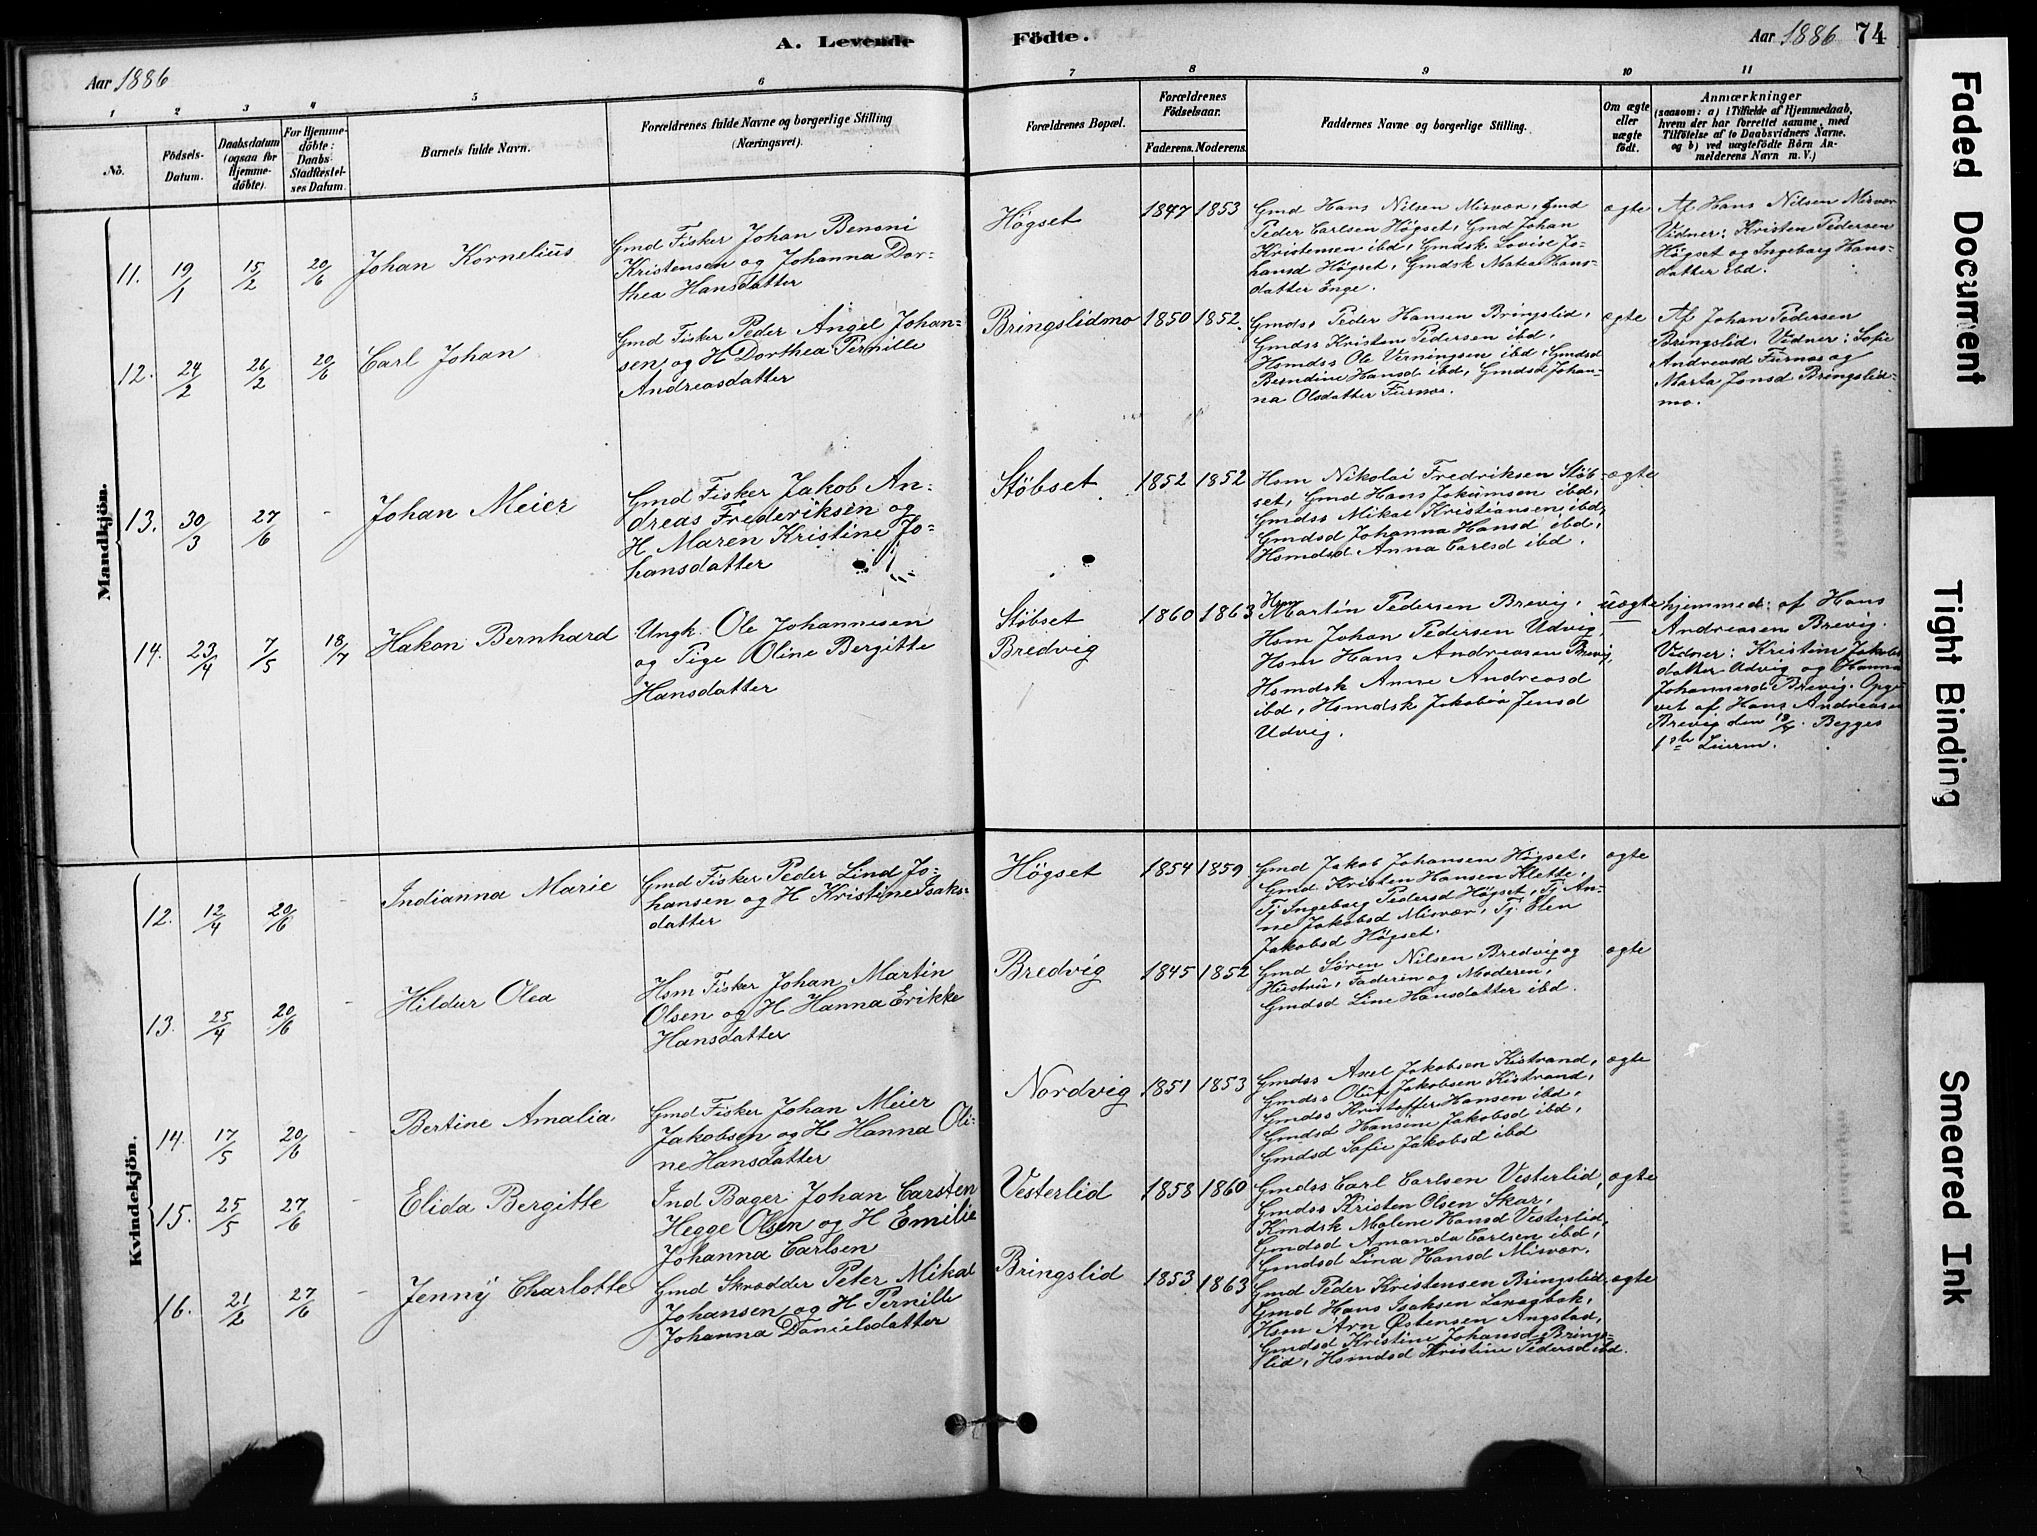 A. Levende Födte.
Aar 1886
Aar 1886 74
1 2 3 4 5 6 7 8 9 10 11
No.
Födsels-
Datum.
Daabsdatum
(ogsaa for
Hjemme-
döbte).
For Hjemme-
döbte:
Daabs-
Stadfæstel-
ses Datum.
Barnets fulde Navn.
Forældrenes fulde Navne og borgerlige Stilling
(Næringsvei).
Forældrenes Bopæl.
Forældrenes
Födselsaar.
Faderens. Moderens.
Faddernes Navne og borgerlige Stilling.
Om ægte
eller
uægte
födt.
Anmærkninger
(saasom: a) i Tilfælde af Hjemmedaab,
hvem der har forrettet samme, med
Tilföielse af to Daabsvidners Navne.
og b) ved uægtefödte Börn An-
melderens Navn m. V.)
Mandkjön.
11. 19/1 15/2 20/6 Johan Kornelius
Gmd Fisker Johan Benoni
Kristensen og Johanna Dor-
thea Hansdatter
Högset 1847 1853
Gmd Hans Nilsen Misvær, Gmd
Peder Carlsen Högset, Gmd Johan
Kristensen ibd, Gmdsk Lovise Jo-
hansd Högset, Gmdsk Matea Hans-
datter Enge.
ægte
Af Hans Nilsen Misvær
Vidner: Kristen Pedersen
Högset og Ingeborg Hans-
datter ibd.
12. 24/2 26/2 20/6 Carl Johan
Gmd Fisker Peder Angel Johan-
sen og H Dorthea Pernille
Andreasdatter
Bringslidmo 1850 1852.
Gmdss Peder Hansen Bringslid,
Gmdss Kristen Pedersen ibd,
Hsmdss Ole Verningsen ibd, Gmdsd
Berndine Hansd ibd, Gmdsd Johan-
na Olsdatter Furnes.
ægte
Af Johan Pedersen
Bringslid. Vidner: Sofie
Andreasd Furnes og
Marta Jonsd Bringslid-
mo.
13. 30/3 27/6 - Johan Meier
Gmd Fisker Jakob An-
dreas Frederiksen og
H Maren Kristine Jo-
hansdatter
Støbset 1852 1852
Hsm Nikolai Fredriksen Støb-
set, Gmd Hans Jokumsen ibd,
Gmdss Mikal Kristiansen ibd,
Gmdsd Johanna Hansd ibd,
Hsmdsd Anna Carlsd ibd.
ægte
14. 23/4 7/5 18/7 Hakon Bernhard
Ungk. Ole Johannesen
og Pige Oline Bergitte
Hansdatter
Støbset
Bredvig
1860 1863
Hsm Martin Pedersen Brevig,
Hsm Johan Pedersen Udvig,
Hsm Hans Andreasen Brevig,
Hsmdsk Anne Andreasd
ibd, Hsmdsk Jakobia Jensd
Udvig.
uægte
hjemmed: af Hans
Andreasen Brevig.
Vidner: Kristine Jakobs
datter Udvig og Hanna
Johannesd Brevig. Opgi-
vet af Hans Andreasen
Brevig den 18/7. Begges
1ste Leierm.
Kvindekjön.
12. 12/4 20/6 Indianna Marie
Gmd Fisker Peder Lind Jo-
hansen og H Kristine Isaks-
datter
Högset 1854 1859
Gmd Jakob Johansen Högset,
Gmd Kristen Hansen Klette,
Tj Ingeborg Pedersd Högset, Tj An-
ne Jakobsd Misvær, Tj. Elen
Jakobsd Högset.
ægte
13. 25/4 20/6 - Hildur Olea
Hsm Fisker Johan Martin
Olsen og H Hanna Erikke
Hansdatter
Bredvig 1845 1852
Gmd Sören Nilsen Bredvig og
Hustru, Faderen og Moderen,
Gmdsd Line Hansdatter ibd.
ægte
14. 17/5 20/6 - Bertine Amalia
Gmd Fisker Johan Meier
Jakobsen og H Hanna Oli-
ne Hansdatter
Nordvig 1851 1853
Gmdss Axel Jakobsen Kistrand,
Gmdss Oluf Jakobsen Kistrand,
Gmdss Kristoffer Hansen ibd,
Gmdsd Hansine Jakobsd ibd,
Gmdsd Sofie Jakobsd ibd
ægte
15. 25/5 27/6 - Elida Bergitte
Ind Bager Johan Carsten
Hegge Olsen og H Emilie
Johanna Carlsen
Vesterlid 1858 1860
Gmdss Carl Carlsen Vesterlid,
Gmdss Kristen Olsen Skar,
Kmdsk Malene Hansd Vesterlid,
Gmdsd Amanda Carlsen ibd,
Gmdsd Lina Hansd Misvær.
ægte
16. 21/2 27/6 - Jenny Charlotte
Gmd Skrædder Peter Mikal
Johansen og H Pernille
Johanna Danielsdatter
Bringslid 1853 1863
Gmd Peder Kristensen Bringslid,
Gmd Hans Isaksen
Hsm Arn Østensen Angstad,
Gmdsd Kristine Johansd Brings-
lid, Hsmdsd Kristine Pedersd ibd.
ægte
Faded Document
Tight Binding
Smeared Ink